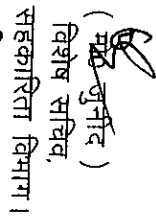 (मो० जुनीद)
विशेष सचिव,
सहकारिता विभाग।